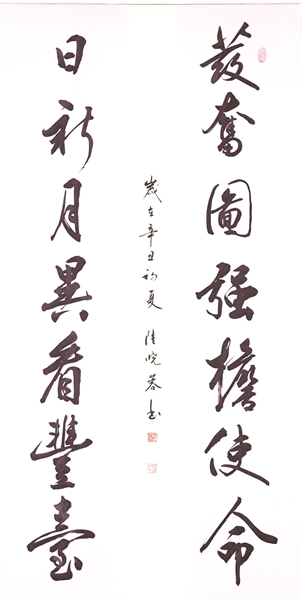 發奮圖强擔使命
日新月異看豐臺
歲在辛丑初夏 陸曉蓉書